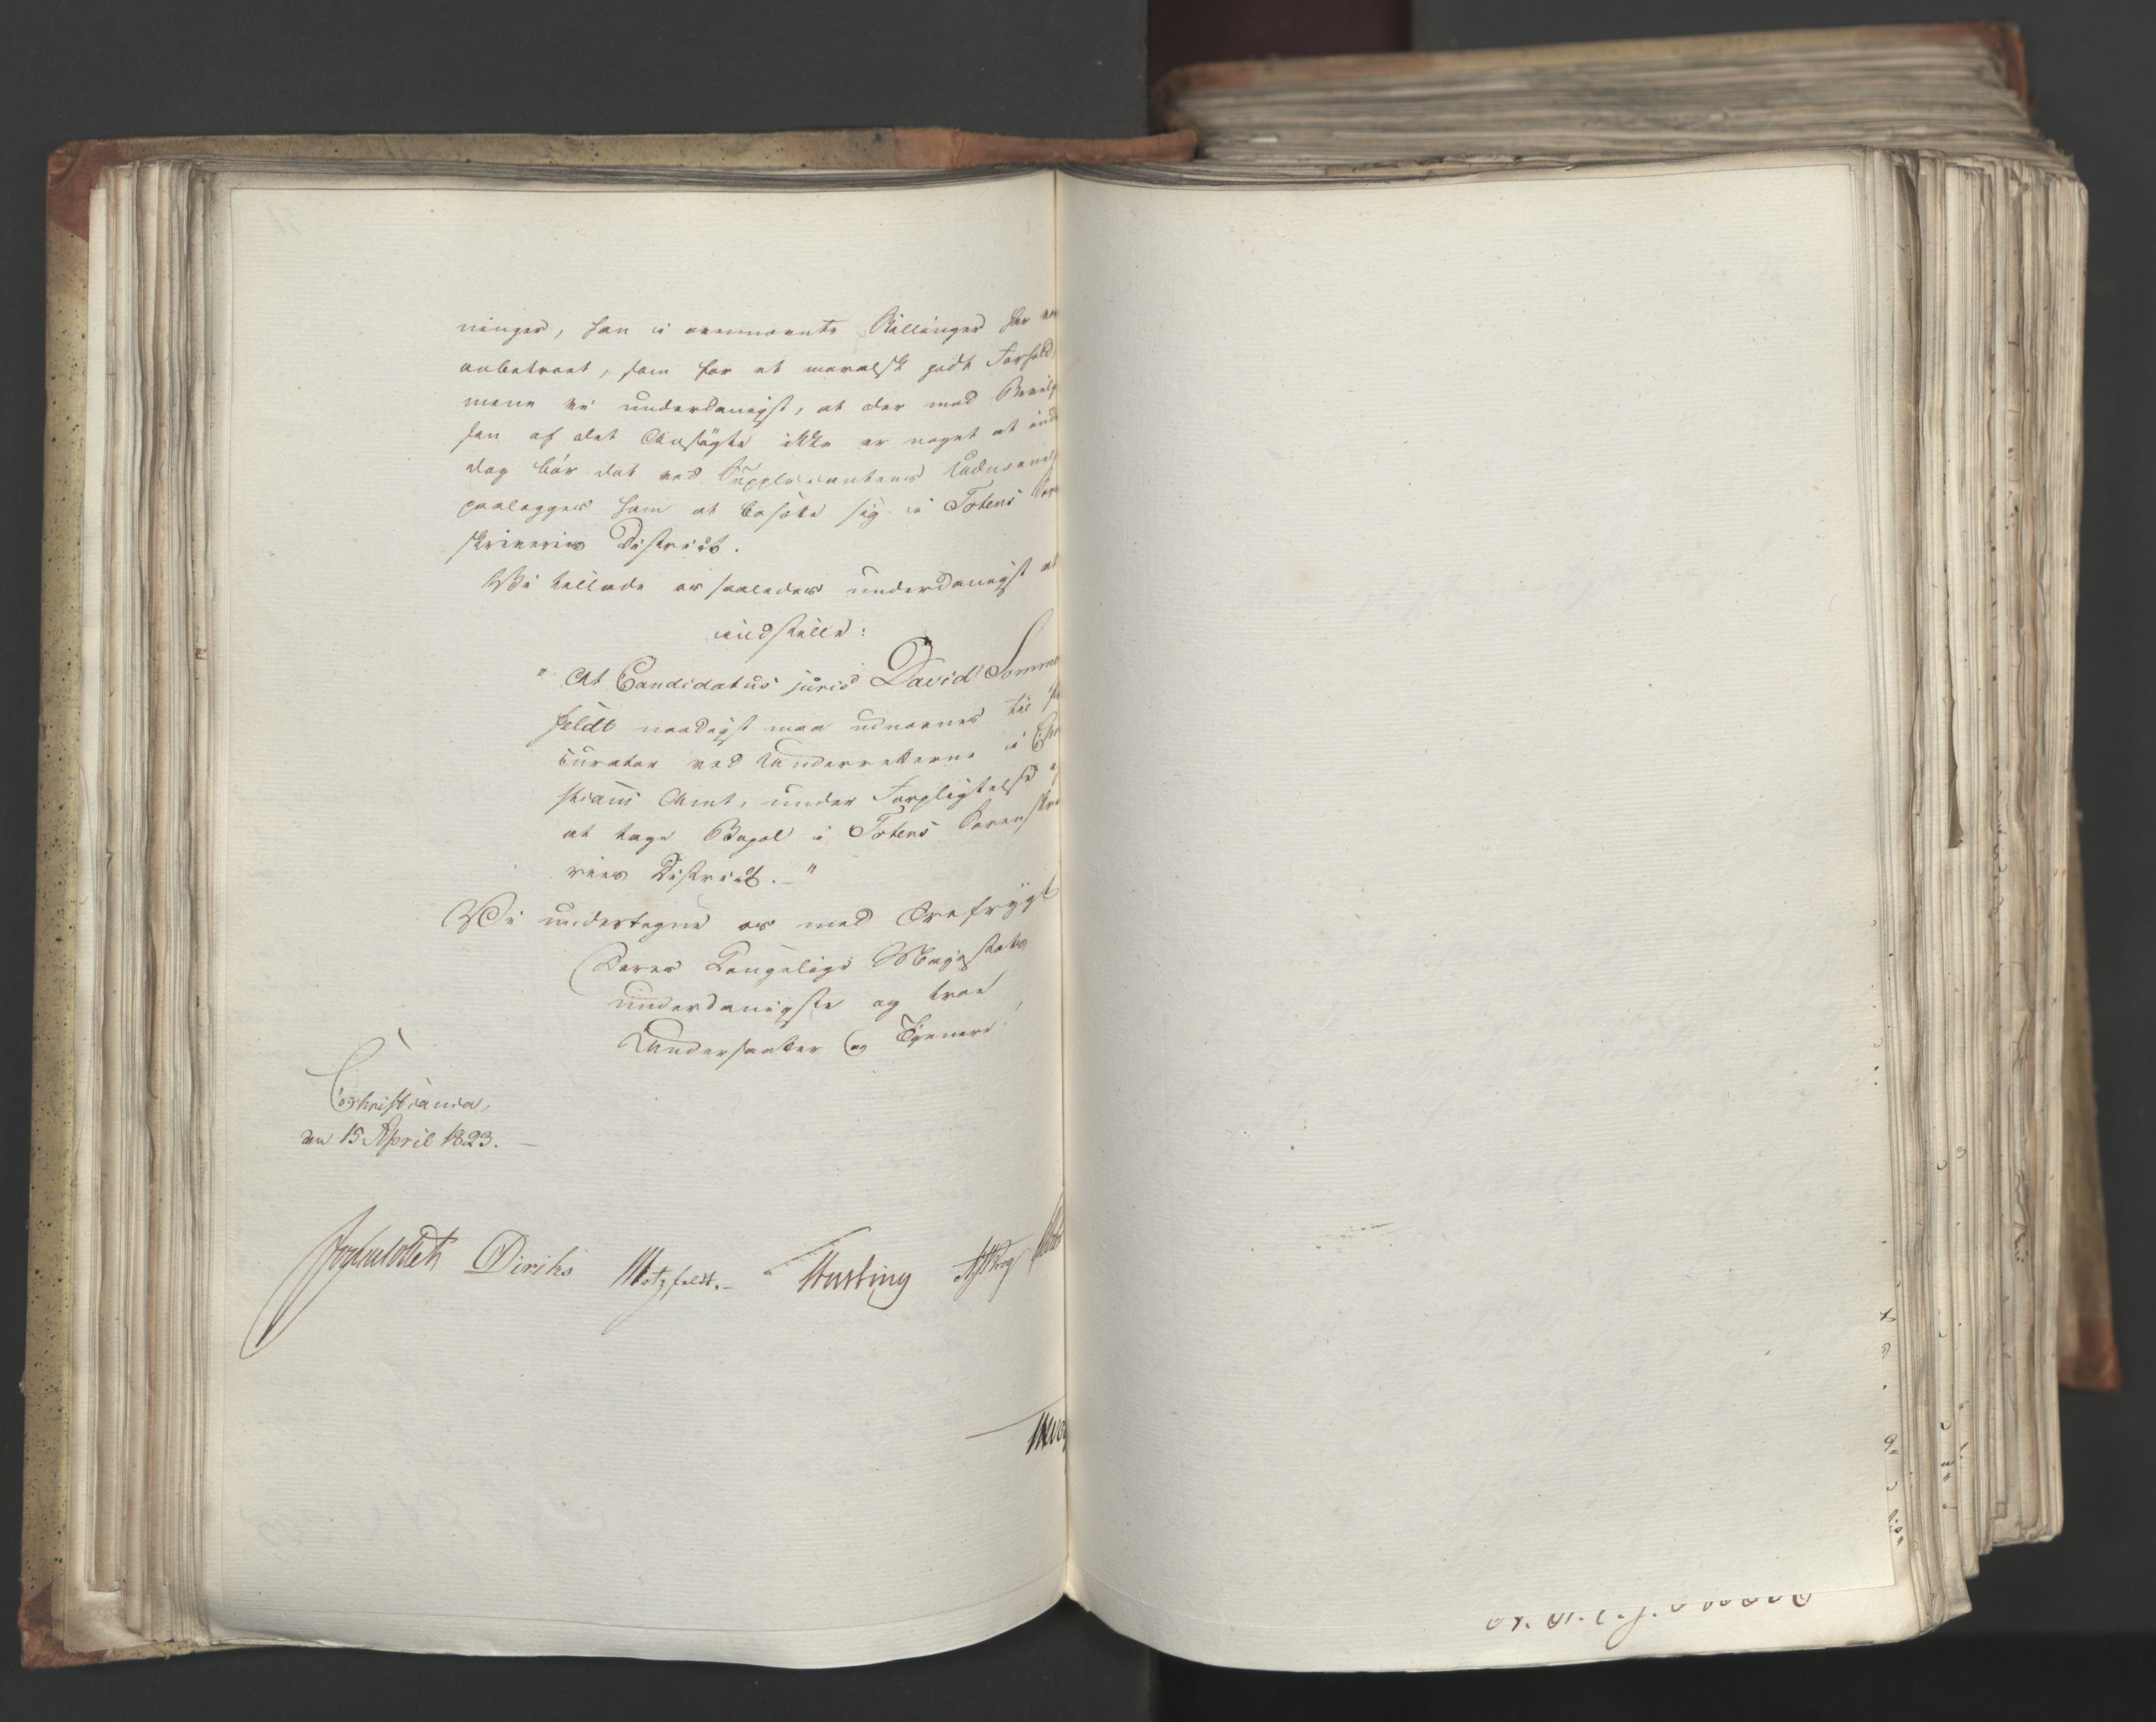 ninger, han i ovennævnte Stillinger har
anbetroet, som for et moralsk godt Forhold,
mene vi underdanigst, at der mod Bevilg
sen af det Ansøgte ikke er noget at ind
dog bør det ved Supplicantens Udnævnel
paalægges ham at bosætte sig i Totens Sor
skriveries District.
Vi tillade os saaledes underdanigst at
indstille:
"At Candidatus juris David Somme
feldt naadigst maa udnævnes til
curator ved Underretterne i Chri
stians Amt, under Forpligtelse
at tage Bopæl i Totens Sorenskri
ries District. —"
Vi undertegne os med Ærefrygt
Deres Kongelige Majestæts
underdanigste og troe
Undersaatter og Tjenere
Christiania,
den 15 April 1823. —
Diriks Motzfeldt. —